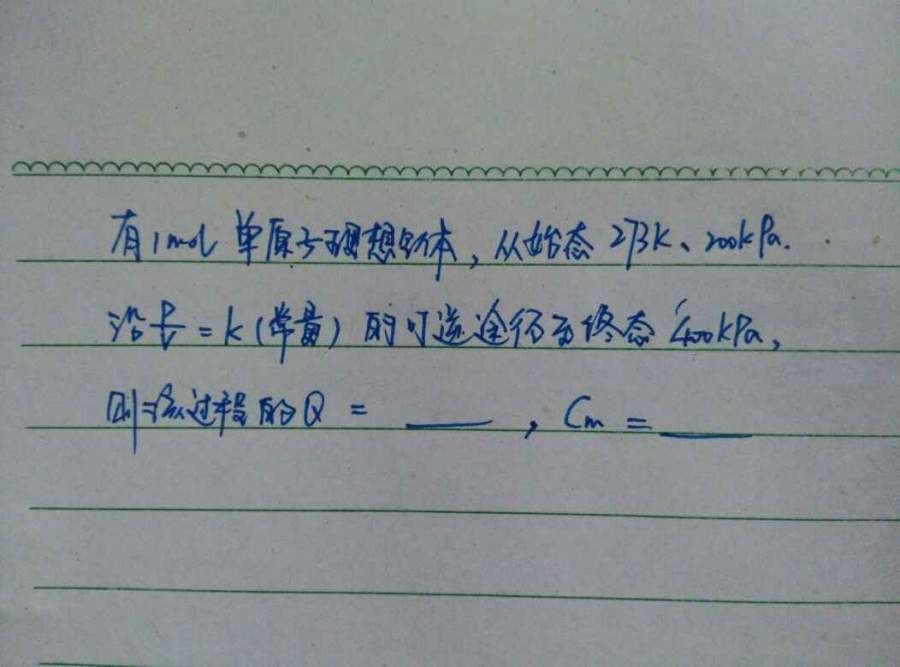 有1mol 单原子理想气体，从始态 273K、200kPa.
沿 P/V = k(常量) 的可逆途径至终态 400kPa,
则该过程的Q = ____ , Cm = ____